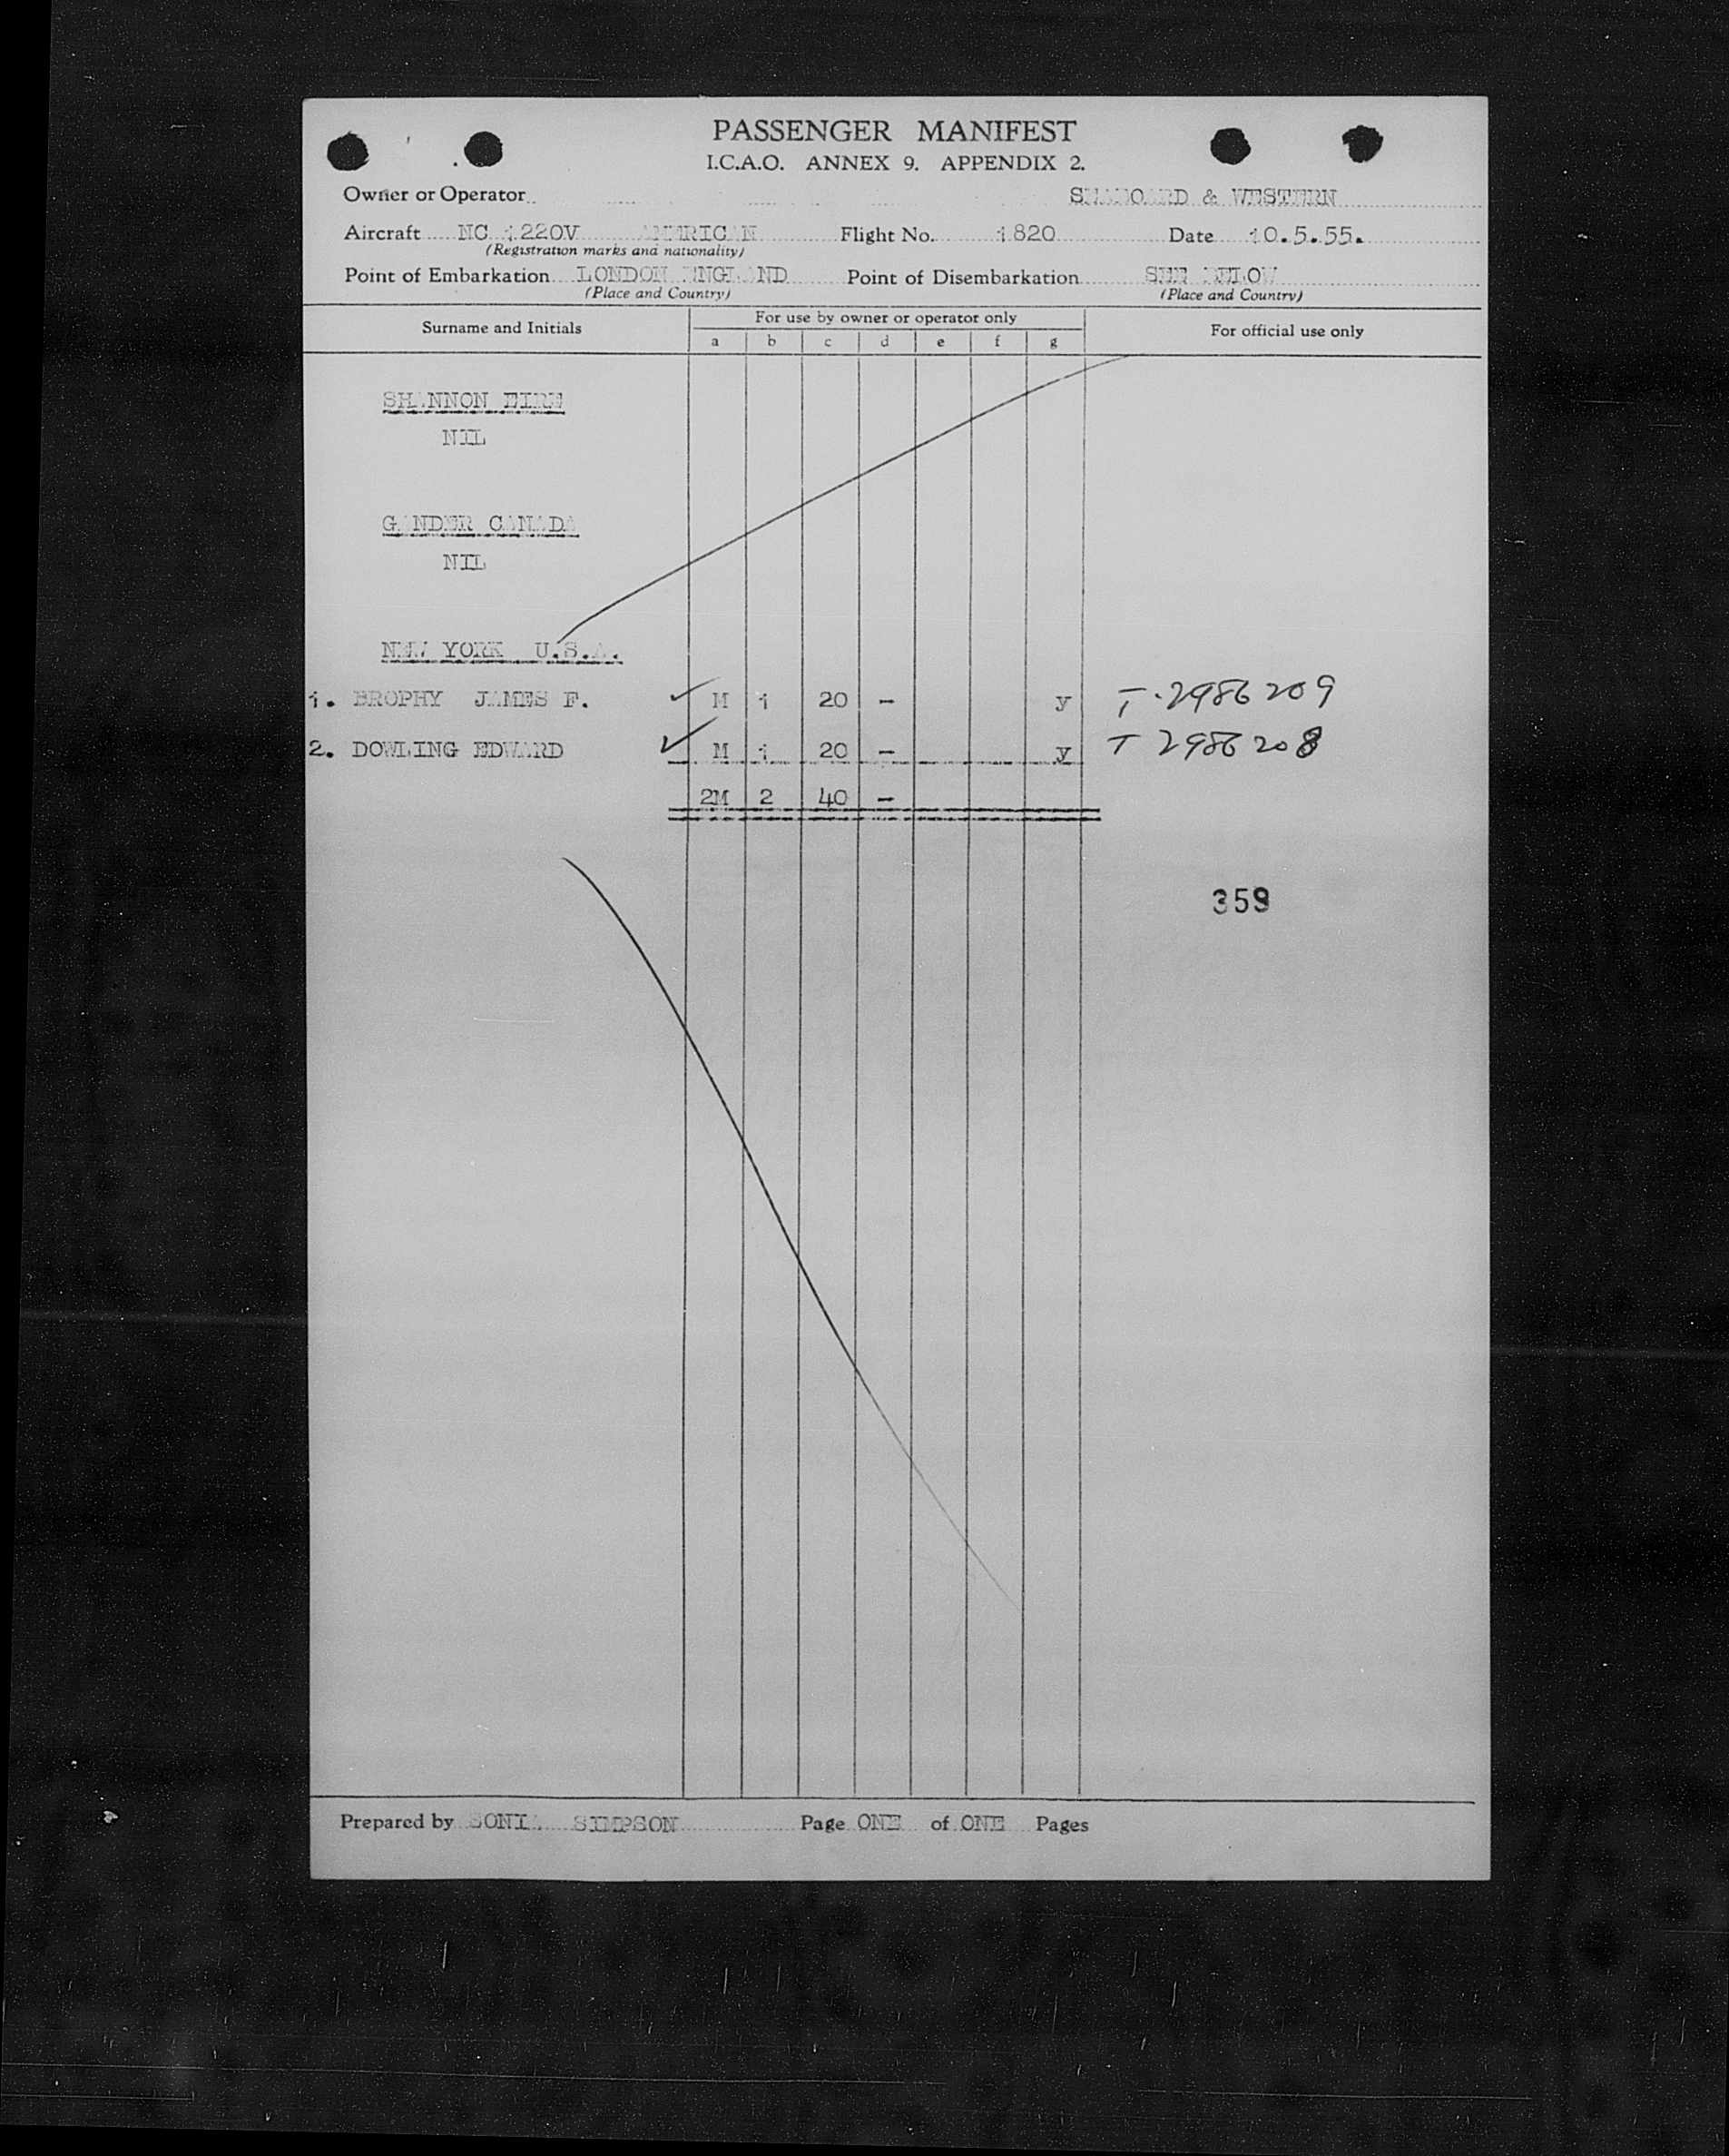 PASSENGER MANIFEST
I.C.A.O. ANNEX 9. APPENDIX 2.
Owner or Operator SEABOARD & WESTERN
Aircraft NC 1220V AMERICAN Flight No. 1820 Date 10.5.55.
(Registration marks and nationality)
Point of Embarkation LONDON ENGLAND Point of Disembarkation SEE BELOW
(Place and Country) (Place and Country)
Surname and Initials For use by owner or operator only For official use only
a b c d e f g
SHANNON EIRE
NIL
GANDER CANADA
NIL
NEW YORK U.S.A.
1. BROPHY JAMES F. ✓ M 1 20 - y T.2986209
2. DOWLING EDWARD ✓ M 1 20 - y T 2986208
2M 2 40 -
359
Prepared by SONIA SIMPSON Page ONE of ONE Pages